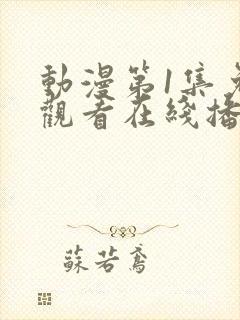 動漫第1集免
觀看在綫播
蘇若鳶